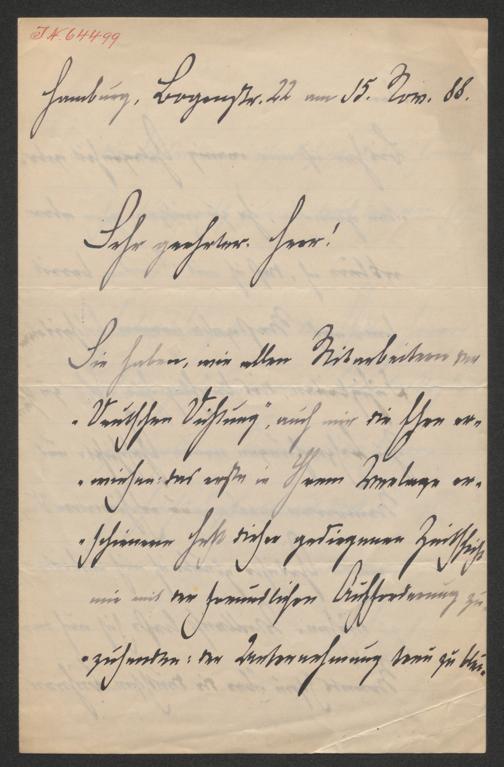 J.N. 64499
Hamburg, Bogenstr. 22 am 15. Nov. 88.
Sehr geehrter Herr!
Sie haben, wie allen Mitarbeitern der
„Deutschen Dichtung“, auch mir die Ehre er-
-wiesen: das erste in Ihrem Verlage er-
-schienene Heft dieser gediegenen Zeitschrift
mir mit der freundlichen Aufforderung zu-
-zusenden: der Unternehmung treu zu blei-